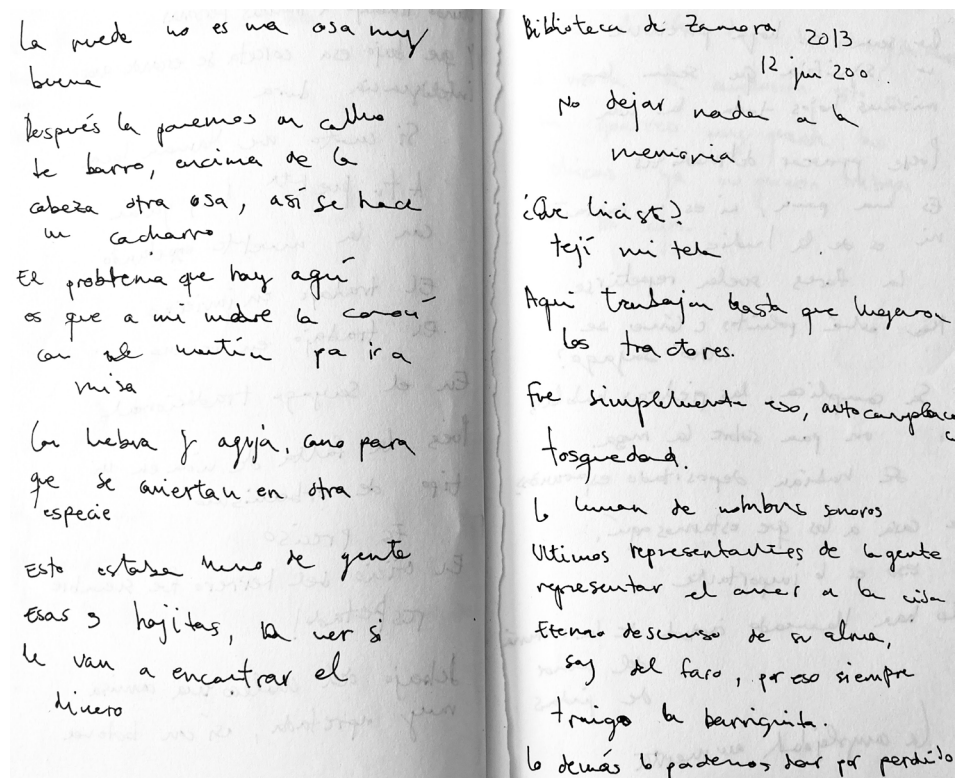 La rueda no es una osa muy
buena
Después la ponemos un collar
de barro, encima de la
cabeza otra osa, así se hace
un cacharro
El problema que hay aquí
es que a mi madre la
con el pa ir a
misa
Con hebra y aguja, como para
que se conviertan en otra
especie
Esto estaba lleno de gente
Esas 3 hojitas, a ver si
le van a encontrar el
dinero
Biblioteca de Zamora 2013
12 jun 200..
No dejar nada a la
memoria
¿Que hiciste?
tejí mi tela
Aqui trabajan hasta que llegaron
los tractores.
Fue simplemente eso,
tosquedad.
lo llenan de nombres sonoros
Ultimos representantes de la gente
representar el amor a la vida
Eterno descanso de su alma,
soy del faro, por eso siempre
traigo la barriguita.
lo demás lo podemos dar por perdido